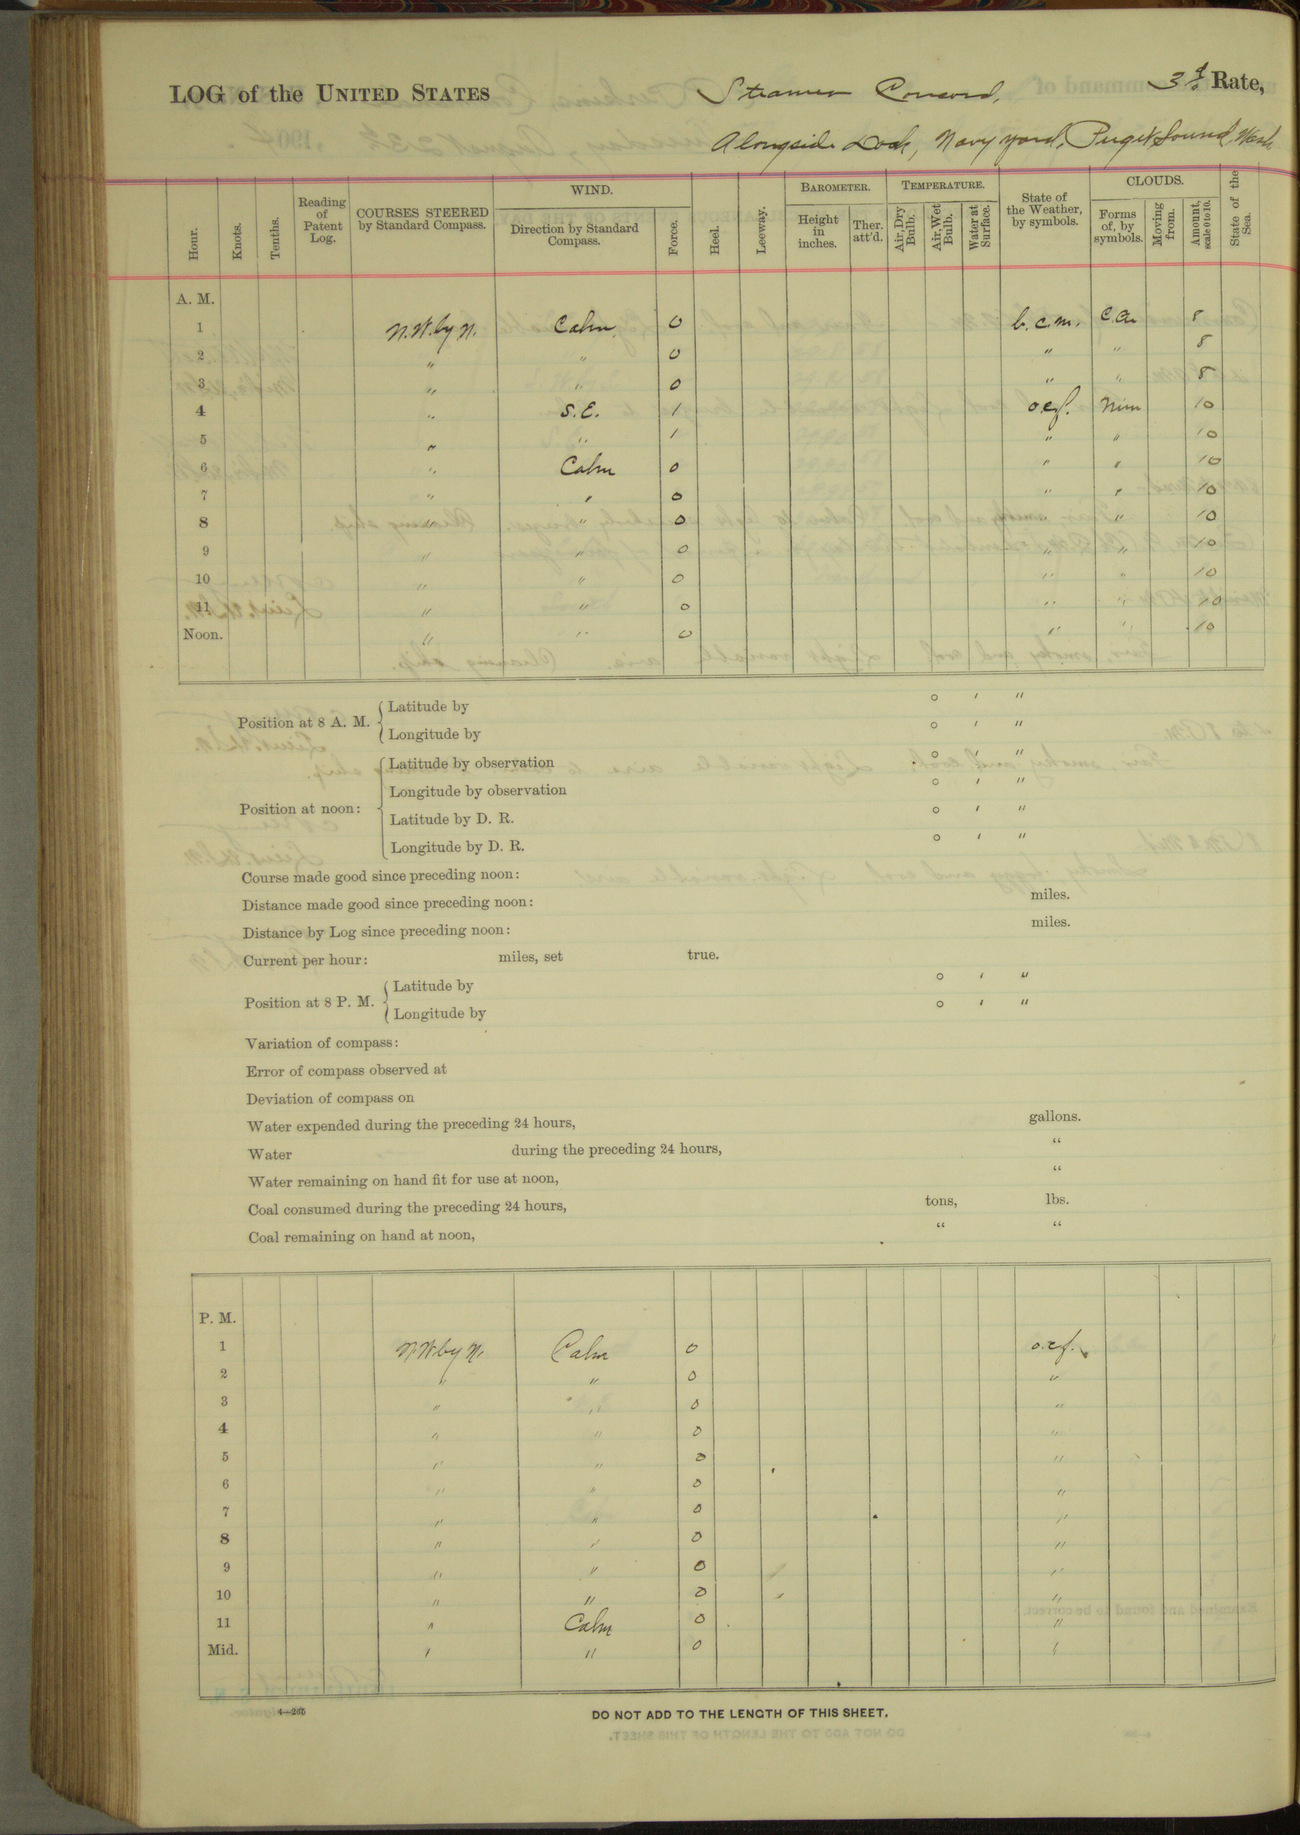 LOG of the UNITED STATES Steamer Concord, 3d Rate,
Alongside Dock, Navy yard, Puget Sound, Wash
Hour. Knots. Tenths. Reading of Patent Log. COURSES STEERED by Standard Compass. WIND. Direction by Standard Compass. Force. Heel. Leeway. BAROMETER. Height in inches. Ther. att'd. TEMPERATURE. Air, Dry Bulb. Air, Wet Bulb. Water at Surface. State of the Weather, by symbols. CLOUDS. Forms of, by symbols. Moving from. Amount, scale 0 to 10. State of the Sea.
A. M.
1 N.W. by N. Calm 0 b.c.m. 8
2 " " 0 " " 8
3 " " 0 " " 8
4 " S.E. 1 o.e.f. Nim 10
5 " " 1 " " 10
6 " Calm 0 " " 10
7 " " 0 " " 10
8 " " 0 " " 10
9 " " 0 " " 10
10 " " 0 " " 10
11 " " 0 " " 10
Noon. " " 0 " " 10
Position at 8 A. M. { Latitude by ° ′ ″
Longitude by ° ′ ″
Position at noon: { Latitude by observation ° ′ ″
Longitude by observation ° ′ ″
Latitude by D. R. ° ′ ″
Longitude by D. R. ° ′ ″
Course made good since preceding noon:
Distance made good since preceding noon: miles.
Distance by Log since preceding noon: miles.
Current per hour: miles, set true.
Position at 8 P. M. { Latitude by ° ′ ″
Longitude by ° ′ ″
Variation of compass:
Error of compass observed at
Deviation of compass on
Water expended during the preceding 24 hours, gallons.
Water during the preceding 24 hours, “
Water remaining on hand fit for use at noon, “
Coal consumed during the preceding 24 hours, tons, lbs.
Coal remaining on hand at noon, “ “
P. M.
1 N.W. by N. Calm 0 o.e.f.
2 " " 0 "
3 " " 0 "
4 " " 0 "
5 " " 0 "
6 " " 0 "
7 " " 0 "
8 " " 0 "
9 " " 0 "
10 " " 0 "
11 " Calm 0 "
Mid. " " 0 "
4—206
DO NOT ADD TO THE LENGTH OF THIS SHEET.